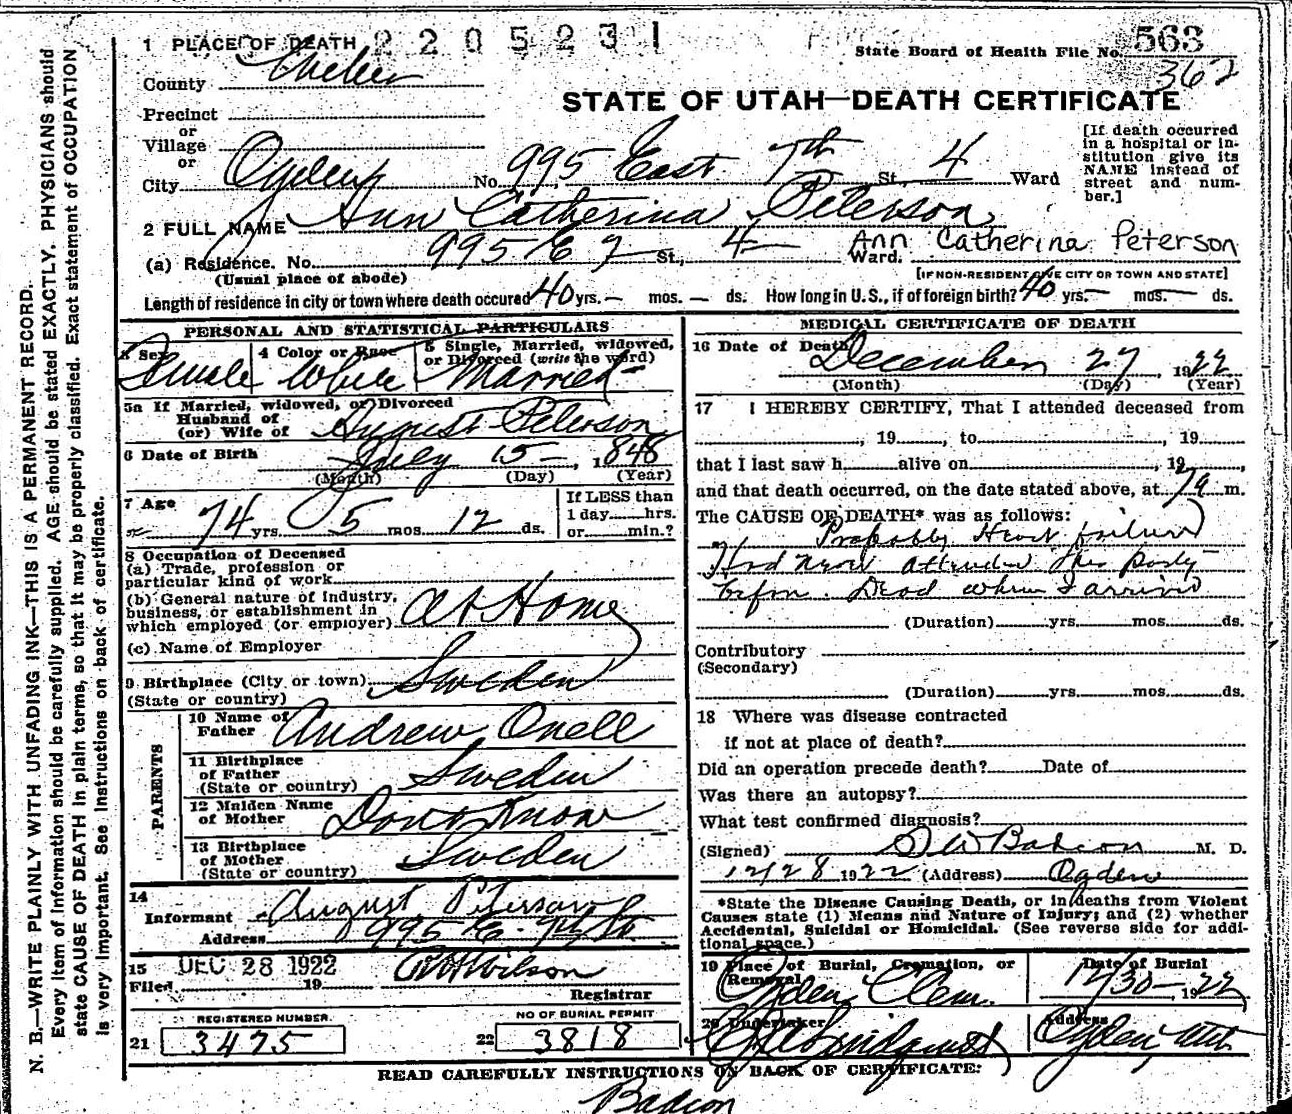 1 PLACE OF DEATH 2 2 0 5 2 3 1
State Board of Health File No. 563
362
County Weber
STATE OF UTAH—DEATH CERTIFICATE
Precinct
or
Village
or
City Ogden No. 995 East 7th St. 4 Ward
[If death occurred in a hospital or institution give its NAME instead of street and number.]
2 FULL NAME Ann Catherina Peterson
(a) Residence. No. 995 E 7 St., 4 Ward. Ann Catherina Peterson
(Usual place of abode) [IF NON-RESIDENT GIVE CITY OR TOWN AND STATE]
Length of residence in city or town where death occured 40 yrs. — mos. — ds. How long in U.S., if of foreign birth? 40 yrs. — mos. — ds.
PERSONAL AND STATISTICAL PARTICULARS
3 Sex Female
4 Color or Race White
5 Single, Married, widowed, or Divorced (write the word) Married
5a If Married, widowed, or Divorced
Husband of
(or) Wife of August Peterson
6 Date of Birth July 15 – , 1848
(Month) (Day) (Year)
7 Age 74 yrs 5 mos. 12 ds.
If LESS than
1 day hrs.
or min.?
8 Occupation of Deceased
(a) Trade, profession or
particular kind of work
(b) General nature of Industry,
business, or establishment in
which employed (or employer) At Home
(c) Name of Employer
9 Birthplace (City or town) Sweden
(State or country)
PARENTS
10 Name of
Father Andrew Onell
11 Birthplace
of Father Sweden
(State or country)
12 Maiden Name
of Mother Dont Know
13 Birthplace
of Mother Sweden
(State or country)
14
Informant August Peterson
Address 995 E. 7th St
15 DEC 28 1922
Filed 19 Wilson
Registrar
REGISTERED NUMBER
21 3475
NO OF BURIAL PERMIT
22 3818
MEDICAL CERTIFICATE OF DEATH
16 Date of Death December 27 1922
(Month) (Day) (Year)
17 I HEREBY CERTIFY, That I attended deceased from
, 19 , to , 19
that I last saw h alive on , 19 ,
and that death occurred, on the date stated above, at 7 a m.
The CAUSE OF DEATH* was as follows:
Probably Heart failure
Had never attended this party
before. Dead when I arrived
(Duration) yrs. mos. ds.
Contributory
(Secondary)
(Duration) yrs. mos. ds.
18 Where was disease contracted
if not at place of death?
Did an operation precede death? Date of
Was there an autopsy?
What test confirmed diagnosis?
(Signed) Badcon M. D.
12/28 1922 (Address) Ogden
*State the Disease Causing Death, or in deaths from Violent
Causes state (1) Means and Nature of Injury; and (2) whether
Accidental, Suicidal or Homicidal. (See reverse side for addi-
tional space.)
19 Place of Burial, Cremation, or
Removal Ogden Cem.
Date of Burial
12/30– 1922
20 Undertaker Lindquist
Address Ogden, Utah
READ CAREFULLY INSTRUCTIONS ON BACK OF CERTIFICATE:
Badcon
N. B.—WRITE PLAINLY WITH UNFADING INK—THIS IS A PERMANENT RECORD.
Every item of information should be carefully supplied. AGE should be stated EXACTLY. PHYSICIANS should
state CAUSE OF DEATH in plain terms, so that it may be properly classified. Exact statement of OCCUPATION
is very important. See instructions on back of certificate.